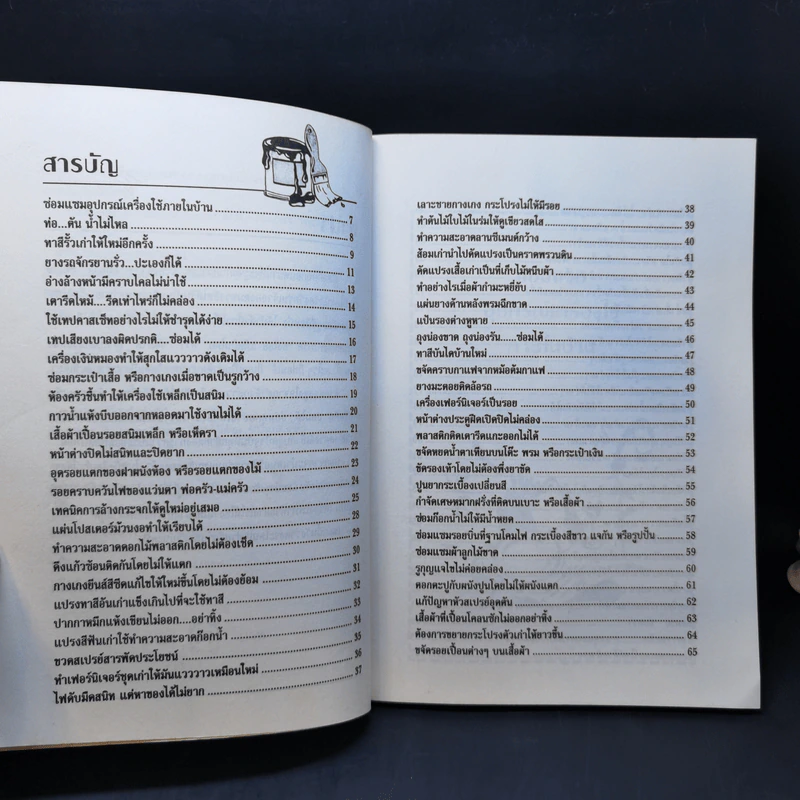 สารบัญ
ซ่อมแซมอุปกรณ์เครื่องใช้ภายในบ้าน 7
ท่อ...ตัน น้ำไม่ไหล 8
ทาสีรั้วเก่าให้ใหม่อีกครั้ง 9
ยางรถจักรยานรั่ว...ปะเองก็ได้ 11
อ่างล้างหน้ามีคราบไคลไม่น่าใช้ 13
เตารีดไหม้...รีดเท่าไหร่ก็ไม่คล่อง 14
ใช้เทปคาสเซ็ทอย่างไรไม่ให้ชำรุดได้ง่าย 15
เทปเสียงเบาลงผิดปรกติ...ซ่อมได้ 16
เครื่องเงินหมองทำให้สุกใสแวววาวดังเดิมได้ 17
ซ่อมกระเป๋าเสื้อ หรือกางเกงเมื่อขาดเป็นรูกว้าง 18
ห้องครัวชื้นทำให้เครื่องใช้เหล็กเป็นสนิม 19
กาวน้ำแห้งบีบออกจากหลอดมาใช้งานไม่ได้ 20
เสื้อผ้าเปื้อนรอยสนิมเหล็ก หรือเห็ดรา 21
หน้าต่างปิดไม่สนิทและปิดยาก 22
อุดรอยแตกของฝาผนังห้อง หรือรอยแตกของไม้ 23
รอยคราบควันไฟของแว่นตา พ่อครัว-แม่ครัว 24
เทคนิคการล้างกระจกให้ดูใหม่อยู่เสมอ 25
แผ่นโปสเตอร์ม้วนงอทำให้เรียบได้ 28
ทำความสะอาดดอกไม้พลาสติกโดยไม่ต้องเช็ด 29
ดึงแก้วซ้อนติดกันโดยไม่ให้แตก 30
กางเกงยีนส์สีซีดแก้ไขให้ใหม่ขึ้นโดยไม่ต้องย้อม 31
แปรงทาสีอันเก่าแข็งเกินไปที่จะใช้ทาสี 32
ปากกาหมึกแห้งเขียนไม่ออก...อย่าทิ้ง 33
แปรงสีฟันเก่าใช้ทำความสะอาดก๊อกน้ำ 34
ขวดสเปรย์สารพัดประโยชน์ 35
ทำเฟอร์นิเจอร์ชุดเก่าให้มันแวววาวเหมือนใหม่ 36
ไฟดับมืดสนิท แต่หาของได้ไม่ยาก 37
เลาะชายกางเกง กระโปรงไม่ให้มีรอย 38
ทำต้นไม้ใบไม้ในร่มให้ดูเขียวสดใส 39
ทำความสะอาดลานซีเมนต์กว้าง 40
ส้อมเก่านำไปดัดแปรงเป็นคราดพรวนดิน 41
ดัดแปรงเสื้อเก่าเป็นที่เก็บไม้หนีบผ้า 42
ทำอย่างไรเมื่อผ้ากำมะหยี่ยับ 43
แผ่นยางด้านหลังพรมฉีกขาด 44
แป้นรองต่างหูหาย 45
ถุงน่องขาด ถุงน่องรัน......ซ่อมได้ 46
ทาสีบันไดบ้านใหม่ 47
ขจัดคราบกาแฟจากหม้อต้มกาแฟ 48
ยางมะตอยติดล้อรถ 49
เครื่องเฟอร์นิเจอร์เป็นรอย 50
หน้าต่างประตูฝืดเปิดปิดไม่คล่อง 51
พลาสติกติดเตารีดแกะออกไม่ได้ 52
ขจัดหยดน้ำตาเทียนบนโต๊ะ พรม หรือกระเป๋าเงิน 53
ขัดรองเท้าโดยไม่ต้องพึ่งยาขัด 54
ปูนยากระเบื้องเปลี่ยนสี 55
กำจัดเศษหมากฝรั่งที่ติดบนเบาะ หรือเสื้อผ้า 56
ซ่อมก๊อกน้ำไม่ให้มีน้ำหยด 57
ซ่อมแซมรอยบิ่นที่ฐานโคมไฟ กระเบื้องสีขาว แจกัน หรือรูปปั้น 58
ซ่อมแซมผ้าลูกไม้ขาด 59
รูกุญแจไขไม่ค่อยคล่อง 60
ตอกตะปูกับผนังปูนโดยไม่ให้ผนังแตก 61
แก้ปัญหาหัวสเปรย์อุดตัน 62
เสื้อผ้าที่เปื้อนโคลนซักไม่ออกอย่าทิ้ง 63
ต้องการขยายกระโปรงตัวเก่าให้ยาวขึ้น 64
ขจัดรอยเปื้อนต่างๆ บนเสื้อผ้า 65